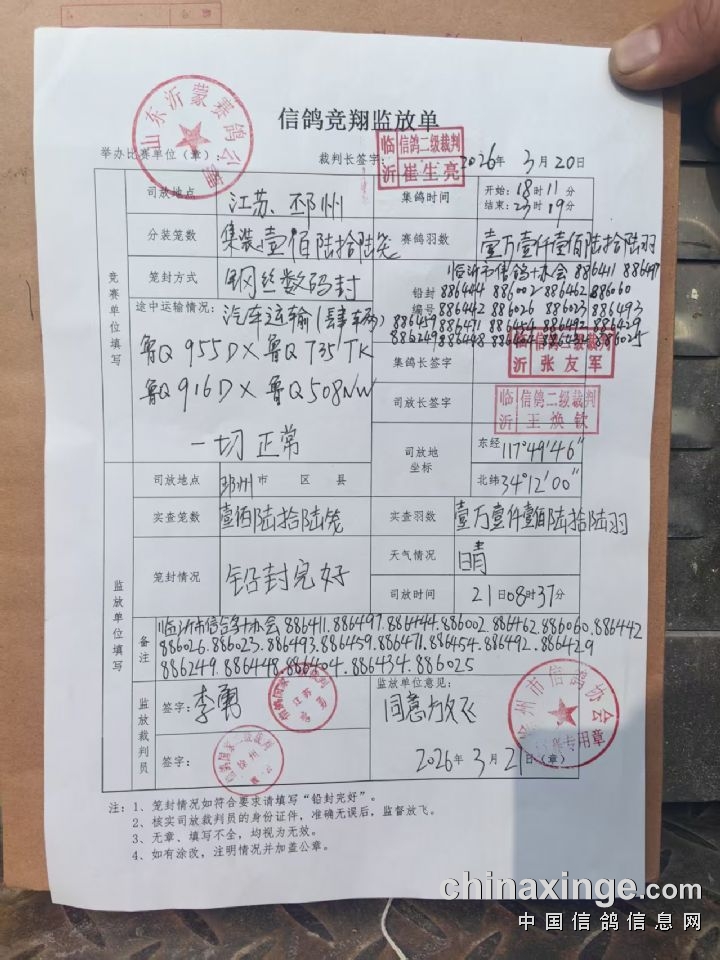 信鸽竞翔监放单
山东沂蒙赛鸽公棚
举办比赛单位(章) 裁判长签字: 2026年3月20日
临沂 信鸽二级裁判 崔生亮
竞赛单位填写
司放地点 江苏、邳州 集鸽时间 开始:18时11分
结束:23时19分
分装笼数 集装壹佰陆拾陆笼 赛鸽羽数 壹万壹仟壹佰陆拾陆羽
笼封方式 钢丝数码封 铅封编号 临沂市信鸽协会 886411 886497
886444 886002 886462 886060
886442 886026 886023 886493
886459 886471 886454 886492 886429
886249 886448 886434 886025
途中运输情况: 汽车运输(肆车辆)
鲁Q 955DX 鲁Q 735TK
鲁Q 916DX 鲁Q 508NW
一切正常
集鸽长签字 临沂 信鸽二级裁判 张友军
司放长签字 临沂 信鸽二级裁判 王焕钦
司放地坐标 东经 117°49′46″
北纬 34°12′00″
监放单位填写
司放地点 邳州市 区 县
实查笼数 壹佰陆拾陆笼 实查羽数 壹万壹仟壹佰陆拾陆羽
笼封情况 铅封完好 天气情况 晴
司放时间 21日08时37分
备注 临沂市信鸽协会 886411.886497.886444.886002.886462.886060.886442
886026.886023.886493.886459.886471.886454.886492.886429
886249.886448.886404.886434.886025
监放裁判员 签字: 李勇
签字:
监放单位意见:
同意放飞
2026年3月21日(章)
州市信鸽协会
专用章
注: 1、笼封情况如符合要求请填写“铅封完好”。
2、核实司放裁判员的身份证件,准确无误后,监督放飞。
3、无章、填写不全,均视为无效。
4、如有涂改,注明情况并加盖公章。
chinaxinge.com
中国信鸽信息网